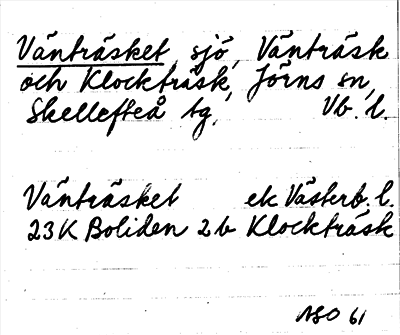 Vänträsket, sjö, Vänträsk
och Klockträsk, Jörns sn,
Skellefteå tg, Vb. l.
Vänträsket ek Västerb. l.
23K Boliden 2b Klockträsk
ASO 61